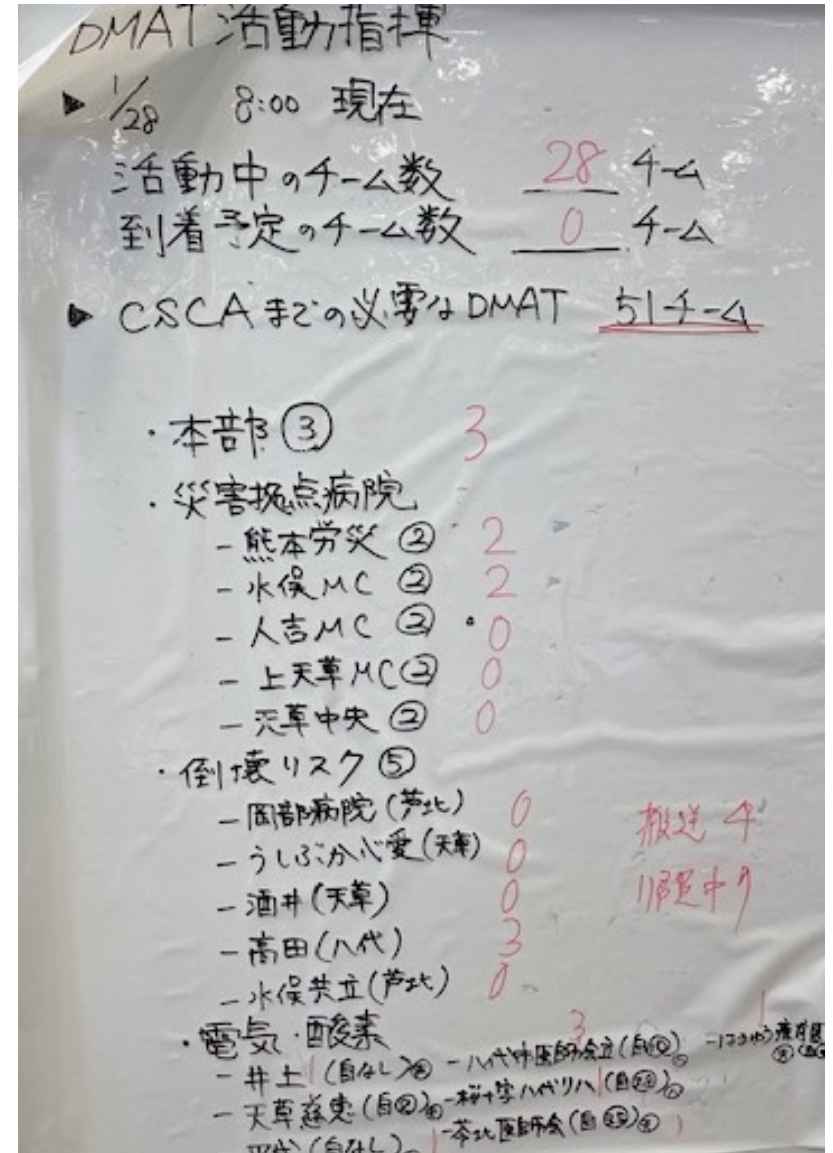 DMAT活動指揮
▶ 1/28 8:00 現在
活動中のチーム数 28 チーム
到着予定のチーム数 0 チーム
▶ CSCAまでの必要なDMAT 51チーム
・本部③ 3
・災害拠点病院
- 熊本労災 ② 2
- 水俣MC ② 2
- 人吉MC ② 0
- 上天草MC② 0
- 天草中央 ② 0
・倒壊リスク ⑤
- 岡部病院(芦北) 0
- うしぶか心愛(天草) 0
搬送 4
- 酒井(天草) 0
- 高田(八代) 3
- 水俣共立(芦北) 0
・電気・酸素 3 1
- 井上 1 (自なし) - 八代市医師会立(自
- 天草慈恵(自②) - 桜十字八代リハ 1(自
- 平成(自なし) 1 - 芦北医師会(自